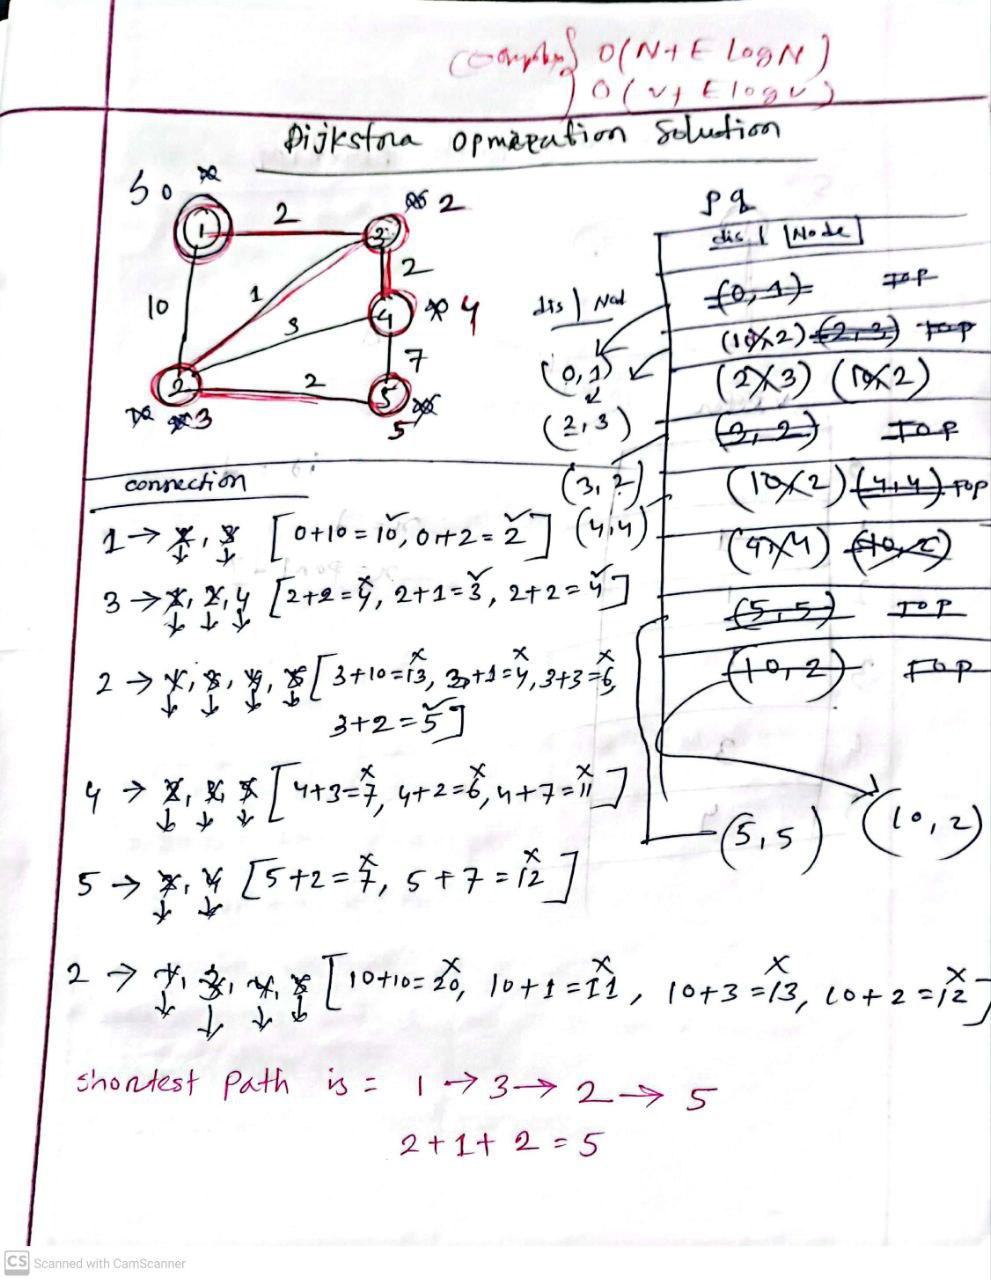 O(N+E logN)
O(v+Elogv)
Dijkstra Opmazation Solution
S 0 ∞
1 2 3 ∞ 2
10 1 2
3 4 ∞ 4
7
2 2 5 ∞
∞ ∞ 3 5
dis | Nod
(0,1)
(2,3)
(3,2)
(4,4)
pq
dis | Node
(0,1) TOP
(10,2) (2,3) TOP
(2,3) (10,2)
(3,2) TOP
(10,2) (4,4) TOP
(4,4) (10,2)
(5,5) TOP
(10,2) TOP
(5,5) (10,2)
connection
1 → 2, 3 [0+10=10, 0+2=2]
3 → 1, 2, 4 [2+2=4, 2+1=3, 2+2=4]
2 → 1, 3, 4, 5 [3+10=13, 3+1=4, 3+3=6,
3+2=5]
4 → 2, 3, 5 [4+3=7, 4+2=6, 4+7=11]
5 → 2, 4 [5+2=7, 5+7=12]
2 → 1, 3, 4, 5 [10+10=20, 10+1=11, 10+3=13, 10+2=12]
shortest path is = 1 → 3 → 2 → 5
2+1+2=5
CS Scanned with CamScanner